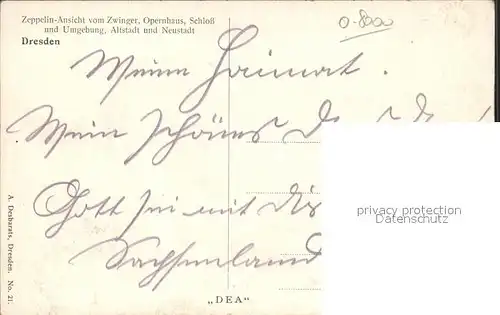 Zeppelin-Ansicht vom Zwinger, Opernhaus, Schloß
und Umgebung, Altstadt und Neustadt
Dresden
Meine Heimat.
Mein schönes
Gott sei mit dir
Sachsenland
A. Desbarats, Dresden. No. 21.
„DEA“
privacy protection
Datenschutz